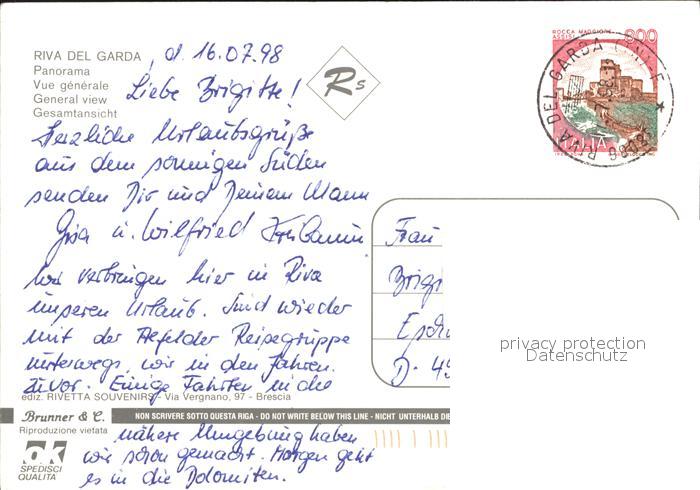 RIVA DEL GARDA, d. 16.07.98
Panorama
Vue générale
General view
Gesamtansicht
Liebe Brigitte!
Herzliche Urlaubsgrüße
aus dem sonnigen Süden
senden Dir und Deinem Mann
Gisa u. Wilfried
Wir verbringen hier in Riva
unseren Urlaub. Sind wieder
mit der Reisegruppe
unterwegs, wie in den Jahren
zuvor. Einige Fahrten in die
ediz. RIVETTA SOUVENIRS - Via Vergnano, 97 - Brescia
Brunner & C.
NON SCRIVERE SOTTO QUESTA RIGA - DO NOT WRITE BELOW THIS LINE - NICHT UNTERHALB DIE
Riproduzione vietata
nähere Umgebung haben
wir schon gemacht. Morgen geht
es in die Dolomiten.
ok
SPEDISCI
QUALITÀ
Rs
ROCCA MAGGIORE
ASSISI
800
ITALIA
RIVA DEL GARDA
Frau
Brigi
D-49
privacy protection
Datenschutz